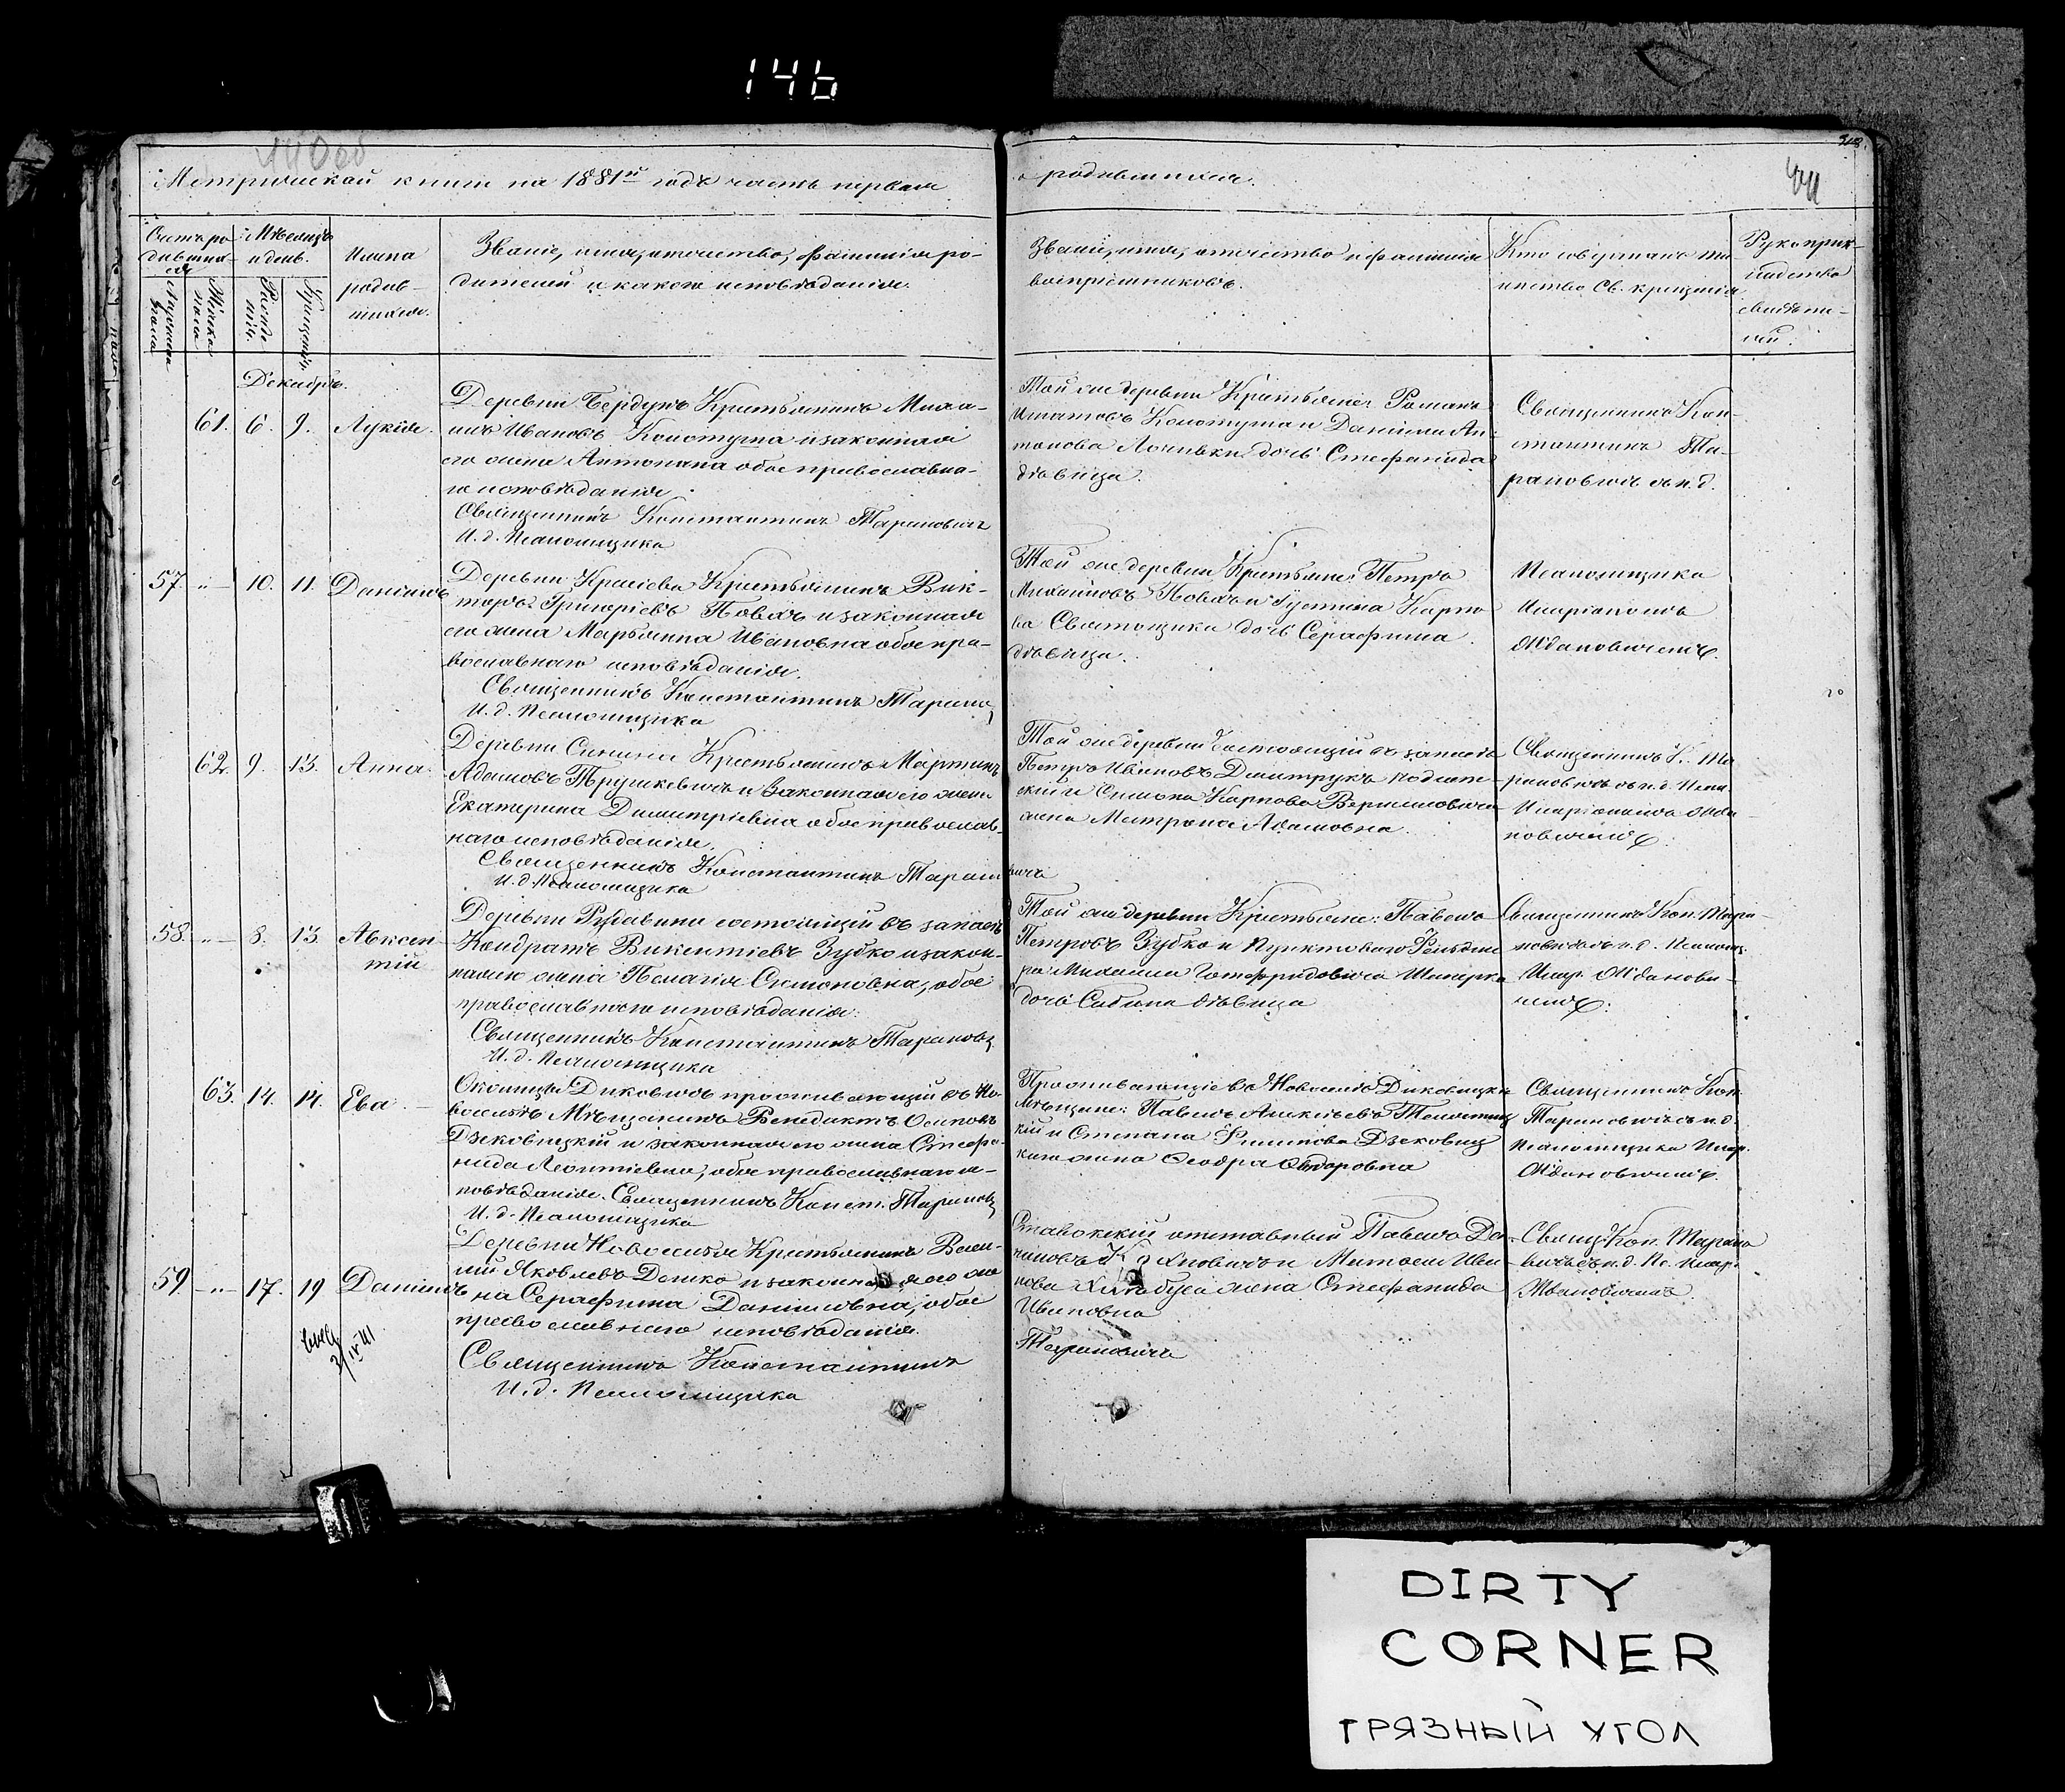 146
440об
Метрической книги на 1881й годъ часть первая
о родившихся.
Счетъ ро-
дивших-
ся
Мѣсяцъ
и день.
Имена
родив-
шихся.
Званіе, имя, отчество, фамилія ро-
дителей и какого исповѣданія.
Званіе, имя, отчество и фамилія
воспріемниковъ.
Кто совершалъ та-
инство Св. крещенія
Рукоприк-
ладство
свидѣте-
лей.
Мужеска
пола
Женска
пола
Рожде-
нія.
Крещенія.
Декабрь.
61. 6. 9. Лукія.
Деревни Бердунъ Крестьянинъ Миха-
илъ Ивановъ Колотуша и законная
его жена Антонина обое православна-
го исповѣданія.
Священникъ Константинъ Тарановичъ
И. д. Псаломщика
Той же деревни Крестьяне: Романъ
Игнатовъ Колотуша и Даніила Ан-
тонова дочь Стефанида
дѣвица.
Священникъ Кон-
стантинъ Та-
рановичъ съ и. д.
57. -"- 10. 11. Даніилъ
Деревни Крестьянинъ Вик-
торъ Григорьевъ и законная
его жена Марьянна Ивановна обое пра-
вославнаго исповѣданія.
Священникъ Константинъ Таранов
И. д. Псаломщика
Той же деревни Крестьяне: Петръ
Михайловъ и Густина Карпо
ва дочь Серафима
дѣвица.
Псаломщика
Иларіономъ
Ждановичемъ.
62. 9. 13. Анна.
Деревни Крестьянинъ Мартинъ
Адамовъ Трушкевичъ и законная его жена
Екатерина Димитріевна обое православ-
наго исповѣданія.
Священникъ Константинъ Таранович
И. д. Псаломщика
Той же деревни Состоящій въ запасѣ
Петръ Ивановъ Дмитрукъ и
Симона Карпова
жена Матрона Адамовна.
Священникъ К. Та
рановичъ съ и. д. Псал.
Иларіономъ Жда
новичемъ.
58. -"- 8. 13. Авксен-
тій
Деревни Рудавини состоящій въ запасѣ
Кондратъ Викентіевъ Зубко и закон-
ная жена Пелагія Симоновна, обое
православнаго исповѣданія.
Священникъ Константинъ Таранов
И. д. Псаломщика
Той же деревни Крестьяне: Павелъ
Петровъ Зубко и Пунктоваго Фельдше
ра Михаила Готфридовича
дочь Сабина дѣвица
Священникъ Кон. Тара-
новичъ съ и. д. Псаломщ.
Илар. Жданови-
чемъ.
63. 14. 14. Ева.
Околицы Диковичъ проживающій въ Но-
воселкѣ Мѣщанинъ Венедиктъ Осиповъ
Дзековицкій и законная его жена Стефа-
нида Леонтіевна, обое православнаго и-
повѣданія. Священникъ Конст. Таранов
И. д. Псаломщика
Проживающіе въ
Мѣщане: Павелъ Алексѣевъ
кій и Степана Филипова Дзековиц
каго жена Ѳеодра Ѳедоровна
Священникъ Кон.
Тарановичъ съ и. д.
Псаломщика Илар.
Ждановичемъ.
59 -"- 17. 19 Даніилъ
Деревни Новоселки Крестьянинъ Васи-
лій Яковлевъ Демко и законная его же
на Серафима Даніиловна, обое
православнаго исповѣданія.
Священникъ Константинъ
И. д. Псаломщика
Ставокскій отставный Павелъ Да-
ниловъ и Матвея Ива
нова жена Стефанида
Ивановна
Тарановичъ
Свящ. Кон. Тарано
вичъ съ и. д. Пс. Илар.
Ждановичемъ.
DIRTY
CORNER
ГРЯЗНЫЙ УГОЛ